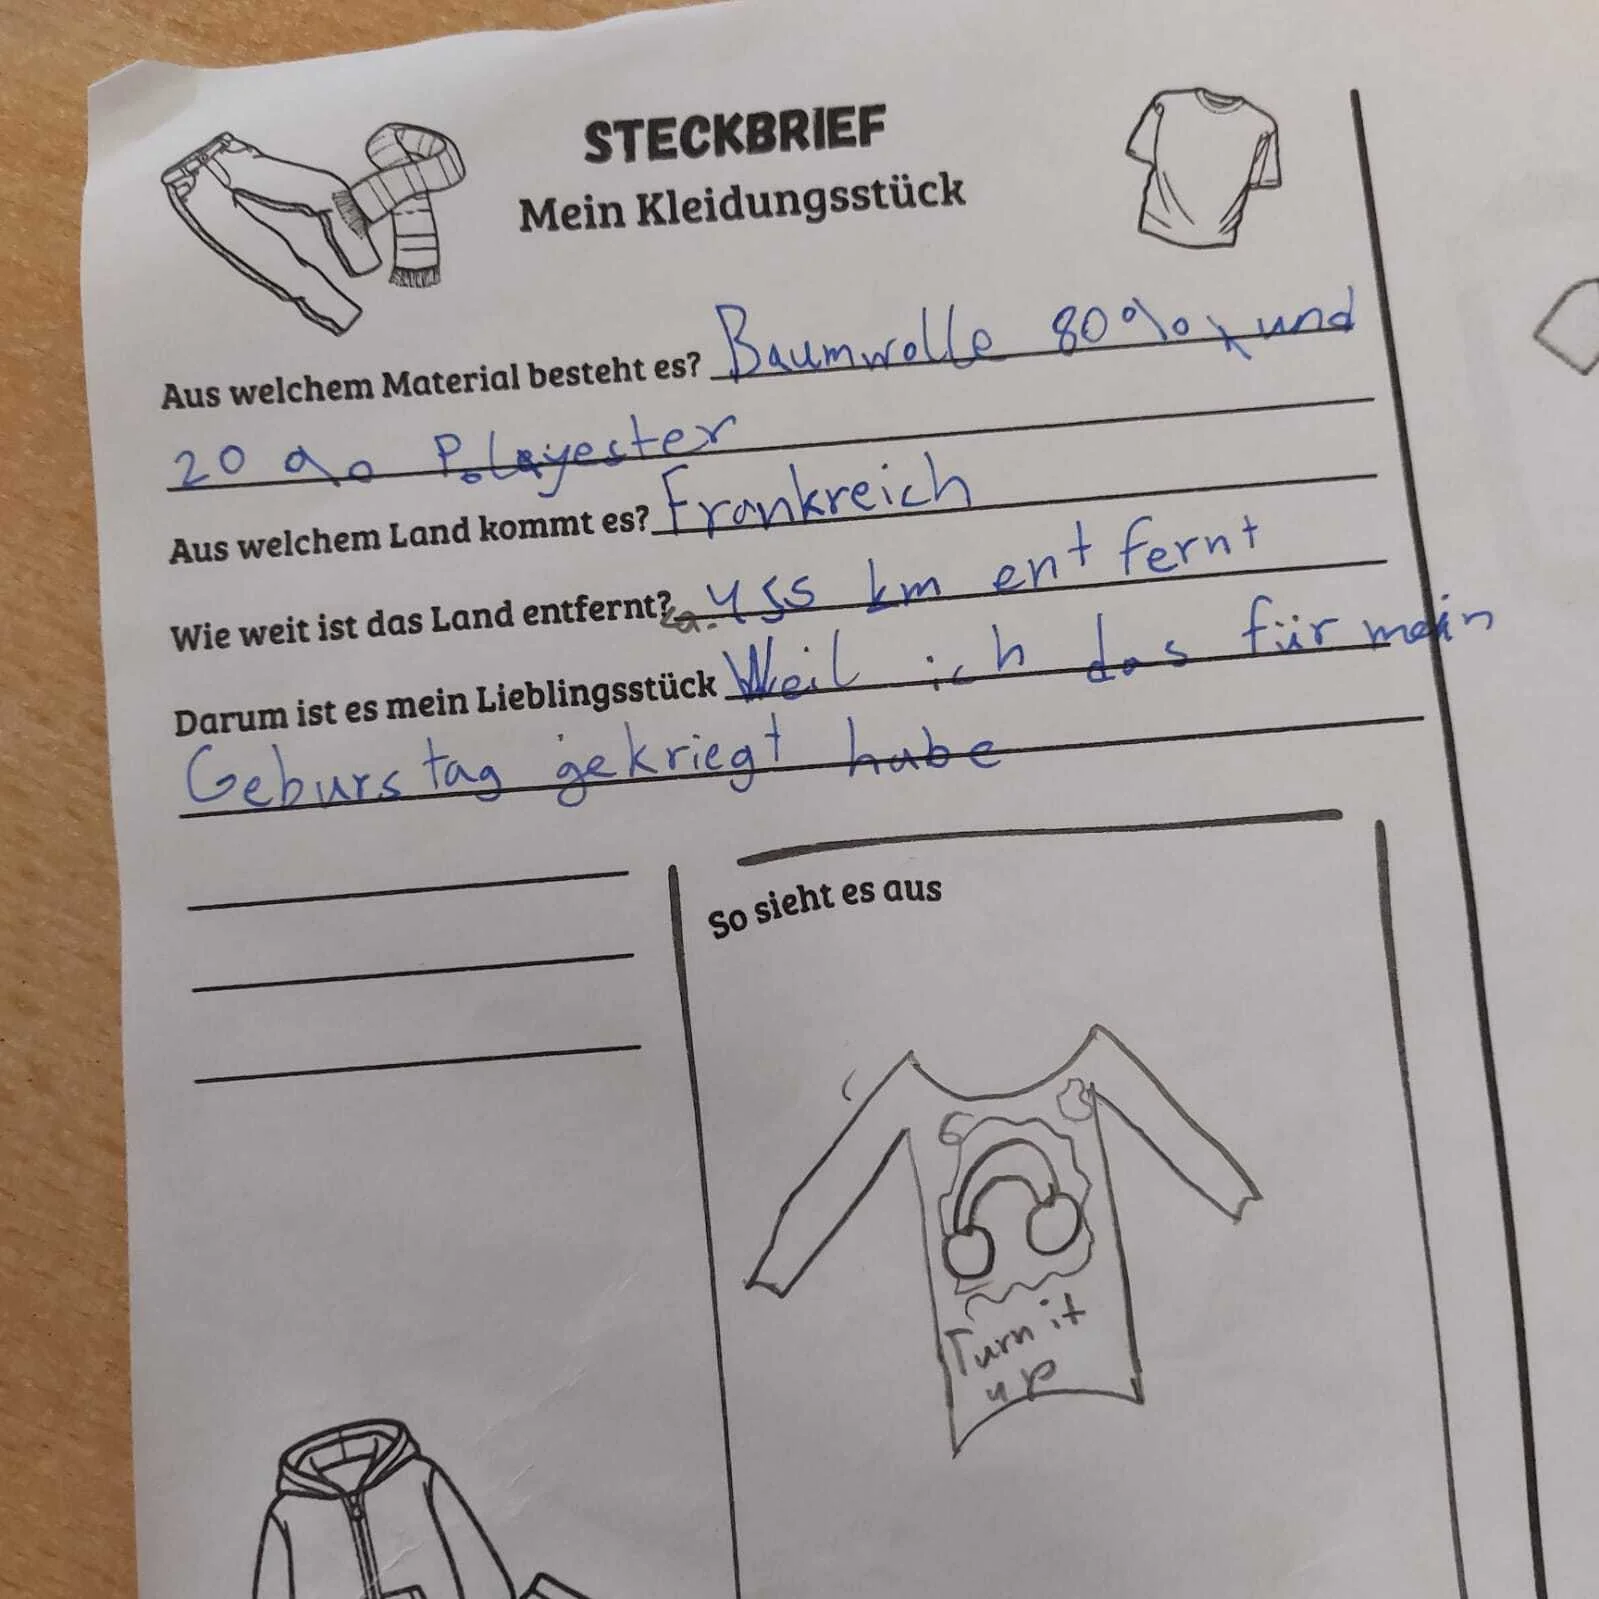 STECKBRIEF
Mein Kleidungsstück
Aus welchem Material besteht es? Baumwolle 80% und
20 % Polayester
Aus welchem Land kommt es? Frankreich
Wie weit ist das Land entfernt? ca. 455 km entfernt
Darum ist es mein Lieblingsstück Weil ich das für mein
Geburstag gekriegt habe
So sieht es aus
Turn it
up